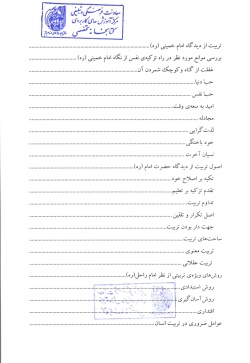 معاونت فرهنگی و تبلیغی
کتابخانه تخصصی
تربیت از دیدگاه امام خمینی (ره)
بررسی موانع مورد نظر در راه تزکیه‌ی نفس از نگاه امام خمینی (ره)
غفلت از گناه و کوچک شمردن آن
حبّ دنیا
حبّ نفس
امید به سعه‌ی وقت
مجادله
لذت‌گرایی
خود باختگی
نسیان آخرت
اصول تربیت از دیدگاه حضرت امام (ره)
تکیه بر اصلاح خود
تقدم تزکیه بر تعلیم
تداوم تربیت
اصل تکرار و تلقین
جهت دار بودن تربیت
ساحت‌های تربیت
تربیت معنوی
تربیت عقلانی
روش‌های ویژه‌ی تربیتی از نظر امام راحل(ره)
روش استبدادی
روش آسان‌گیری
اقتداری
عوامل ضروری در تربیت انسان